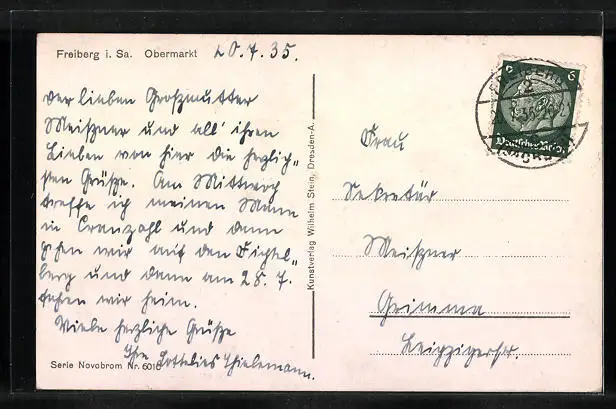 Freiberg i. Sa. Obermarkt 20.7.35.
Der lieben Großmutter
Meißner und all' ihren
Lieben von hier die herzlich=
sten Grüße. Am Mittwoch
treffe ich meinen Mann
in Cranzahl und dann
gehen wir auf den Fichtel=
berg und dann am 28.7.
fahren wir heim.
Viele herzliche Grüße
Ihre Lottelies Thielemann.
Serie Novobrom Nr. 6016
Kunstverlag Wilhelm Stein, Dresden-A.
Deutsches Reich
Frau
Sekretär
Meißner
Grimma
Leipzigerstr.